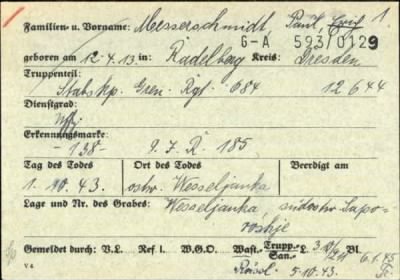 1.
Familien- u. Vorname: Messerschmidt, Paul,
G-A 593/0129
geboren am 12.4.13 in: Radelberg Kreis: Dresden
Truppenteil:
Stabskp. Gren. Rgt. 684 12 644
Dienstgrad:
Uffz.
Erkennungsmarke:
- 138 - 9. J. R. 185
Tag des Todes Ort des Todes Beerdigt am
1. 10. 43. ostw. Wesseljanka
Lage und Nr. des Grabes: Wesseljanka, südostw. Sapo-
roshje
Gemeldet durch: V.L. Ref I. W.G.O. Wast.- Trupp.- San.- L. Bl.
5.10.43.
V 4